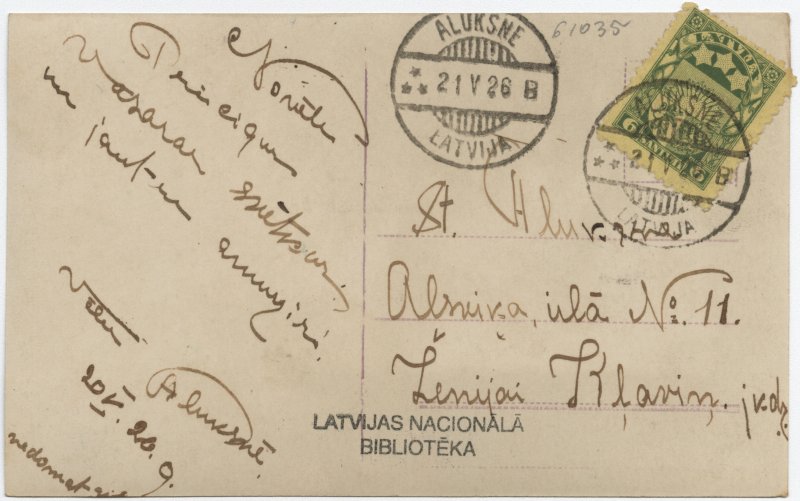 Novēlu
Priecīgus
Vasaras svētkus!
un jautru
Vēlu
20V.26.g.
Alūksnē.
61035
ALUKSNE
21 V 26 B
LATVIJA
LATVIJA
ALUKSNE
21 V B
LATVIJA
St. Alūksne
ielā No. 11.
Ženijai Kļaviņ. jkdz.
LATVIJAS NACIONĀLĀ
BIBLIOTĒKA